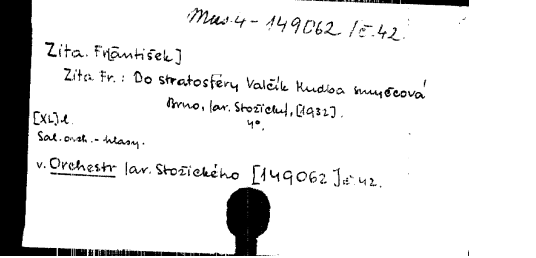 Mus.4-149062/č.42.
Zita. Fr[antišek]
Zita. Fr.: Do stratosféry Valčík Hudba smyčcová
Brno, Jar. Stožický, [1932].
4°.
[XL] l.
Sal. orch. - hlasy.
v. Orchestr Jar. Stožického [149062] č. 42.